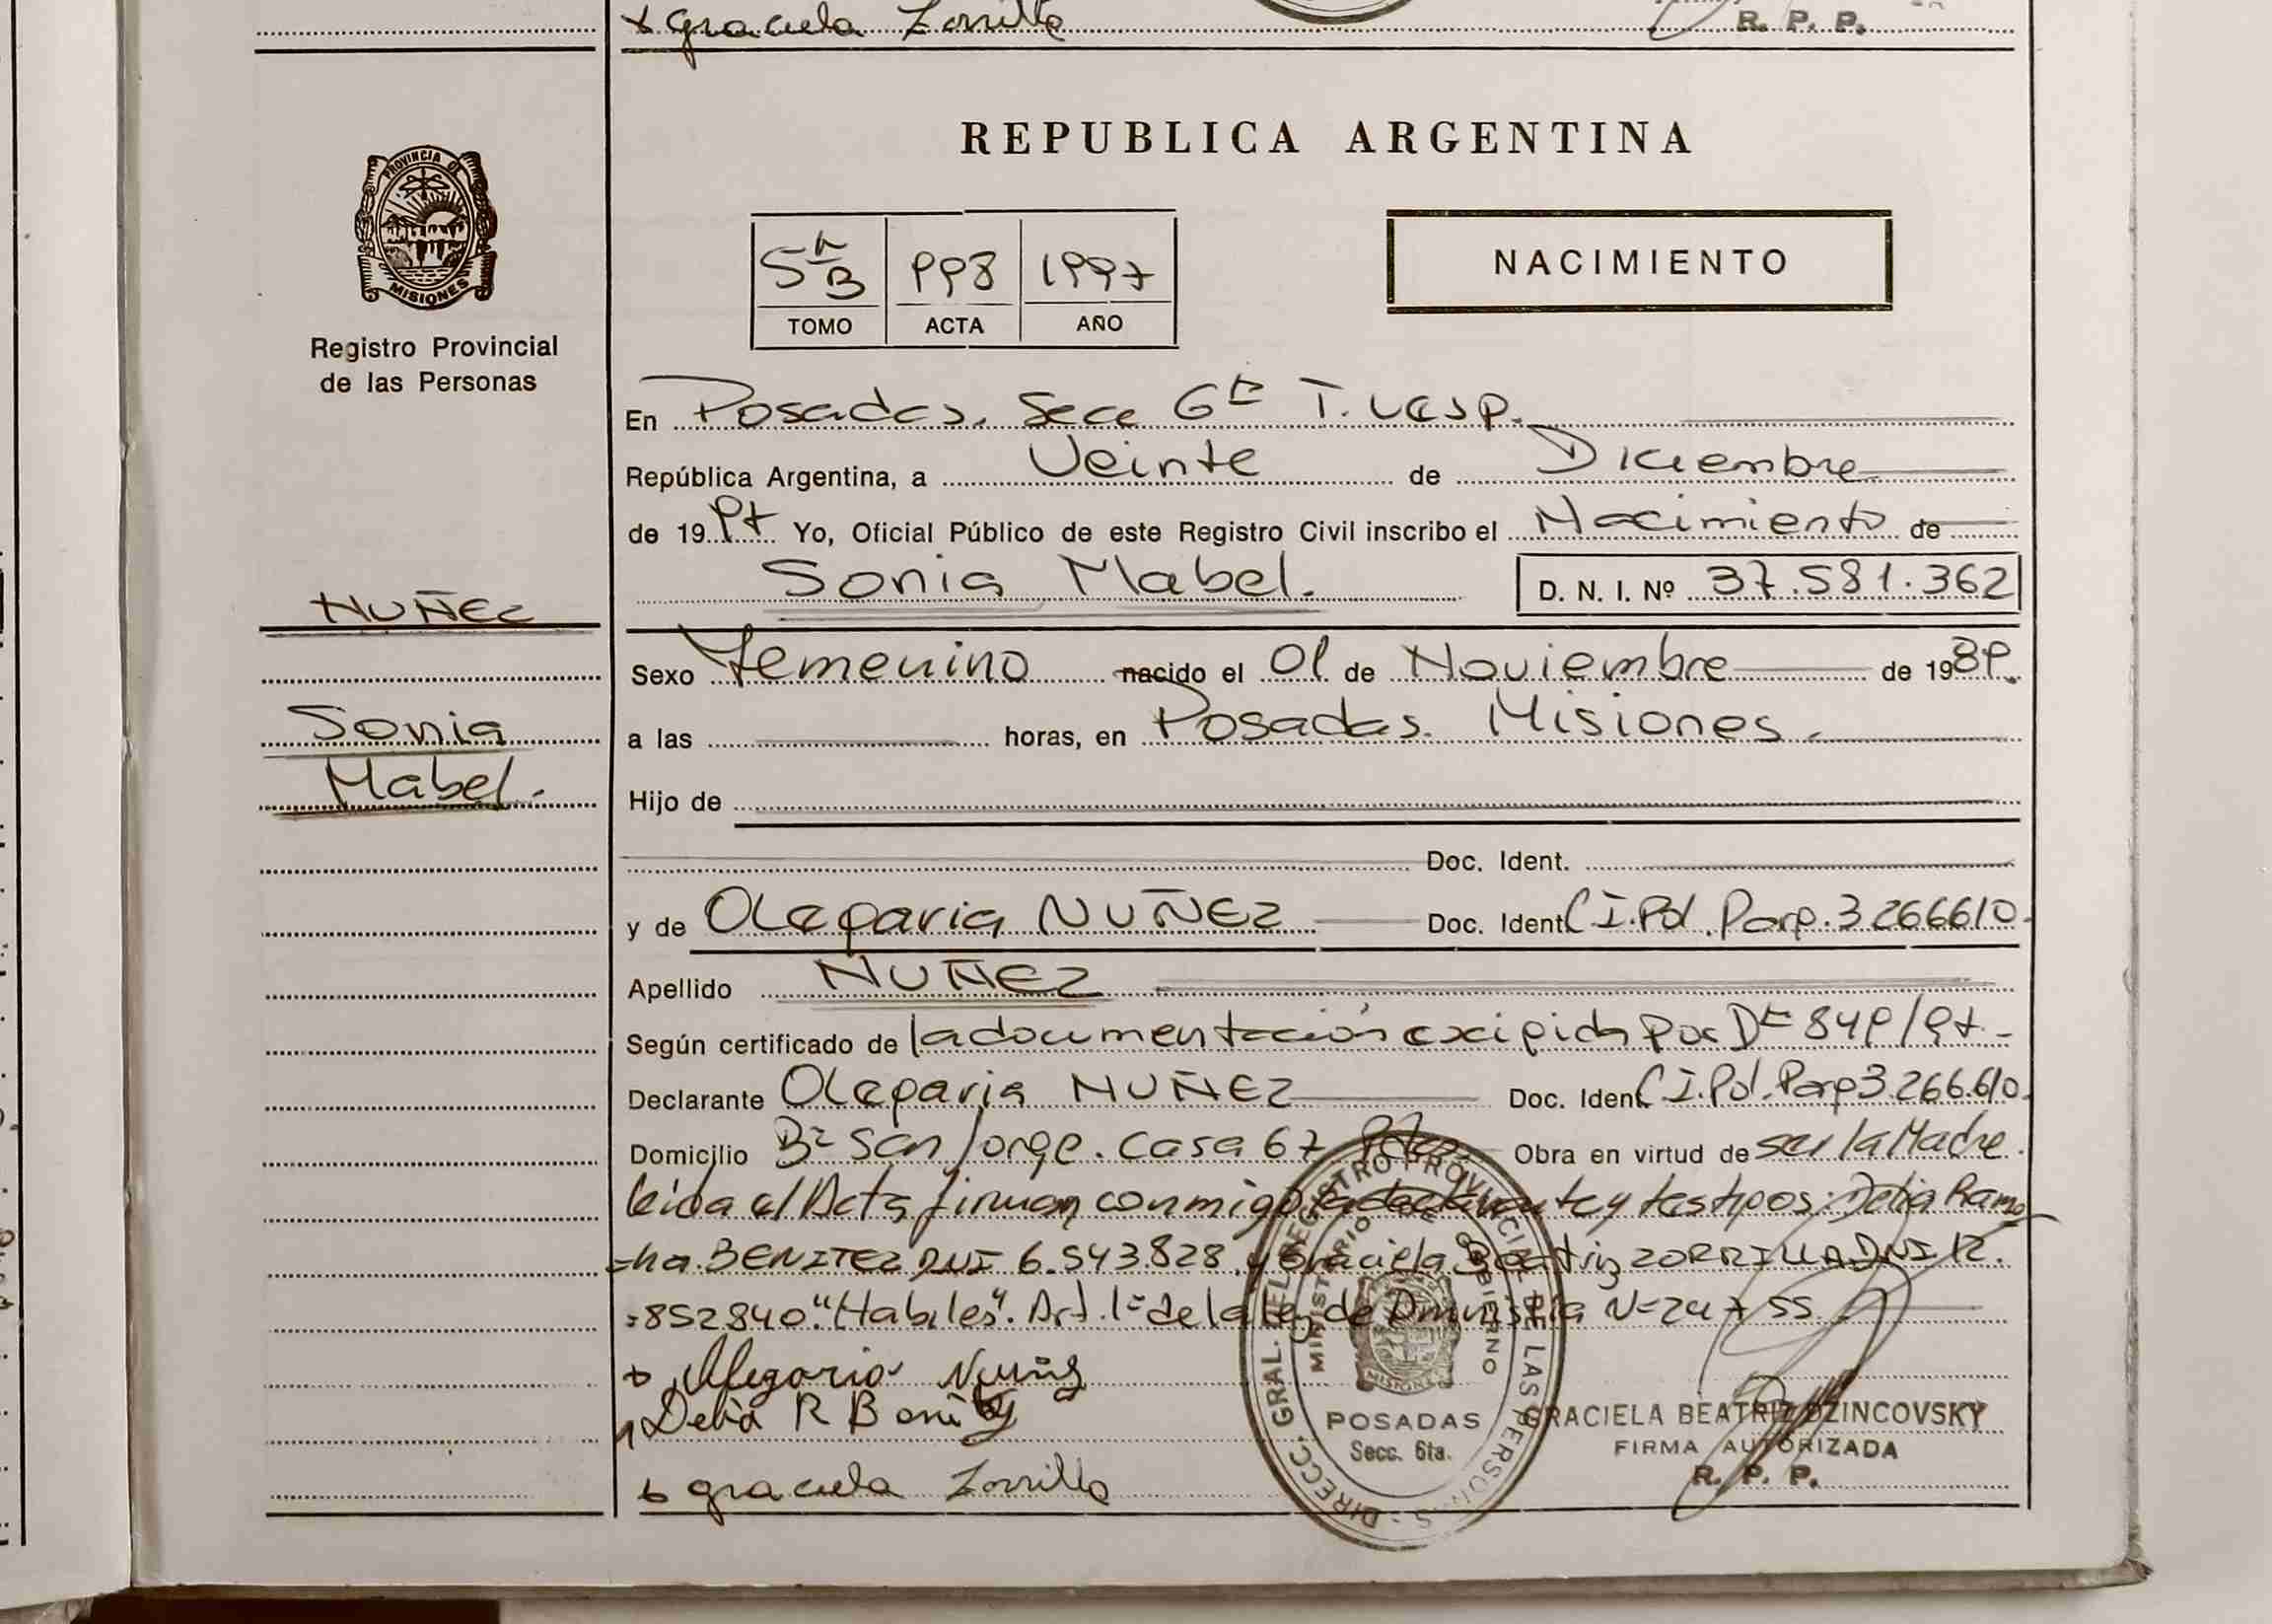 + Graciela Zorrilla
R. P. P.
REPUBLICA ARGENTINA
PROVINCIA DE
MISIONES
Registro Provincial
de las Personas
5º B 998 1997
TOMO ACTA AÑO
NACIMIENTO
En Posadas. Secc 6ta T. Vesp.
República Argentina, a Veinte de Diciembre
de 1997 Yo, Oficial Público de este Registro Civil inscribo el Nacimiento de
Sonia Mabel. D. N. I. Nº 37.581.362
NUÑEZ
Sexo Femenino nacido el 01 de Noviembre de 1989.
Sonia
Mabel.
a las horas, en Posadas. Misiones.
Hijo de
Doc. Ident.
y de Olegaria NUÑEZ Doc. Ident C.I.Pol.Parg.3266610.
Apellido NUÑEZ
Según certificado de la documentación exigida por Dto 849/97.
Declarante Olegaria NUÑEZ Doc. Ident C.I.Pol.Parg 3.266.610.
Domicilio Bº San Jorge. Casa 67 Pdas. Obra en virtud de ser la Madre.
leida el Acta, firman conmigo la declarante y testigos: Delia Ramo
=na. BENITEZ DNI 6.543.828. y Graciela Beatriz ZORRILLA DNI 12.
=852840. "Habiles". Art. 1º de la Ley de Amnistia Nº 24755.
+ Olegaria Nuñez
Delia R Benitez
+ graciela Zorrilla
DIRECC. GRAL. DEL REGISTRO PROVINCIAL DE LAS PERSONAS
MINISTERIO DE GOBIERNO
MISIONES
POSADAS
Secc. 6ta.
GRACIELA BEATRIZ DZINCOVSKY
FIRMA AUTORIZADA
R. P. P.